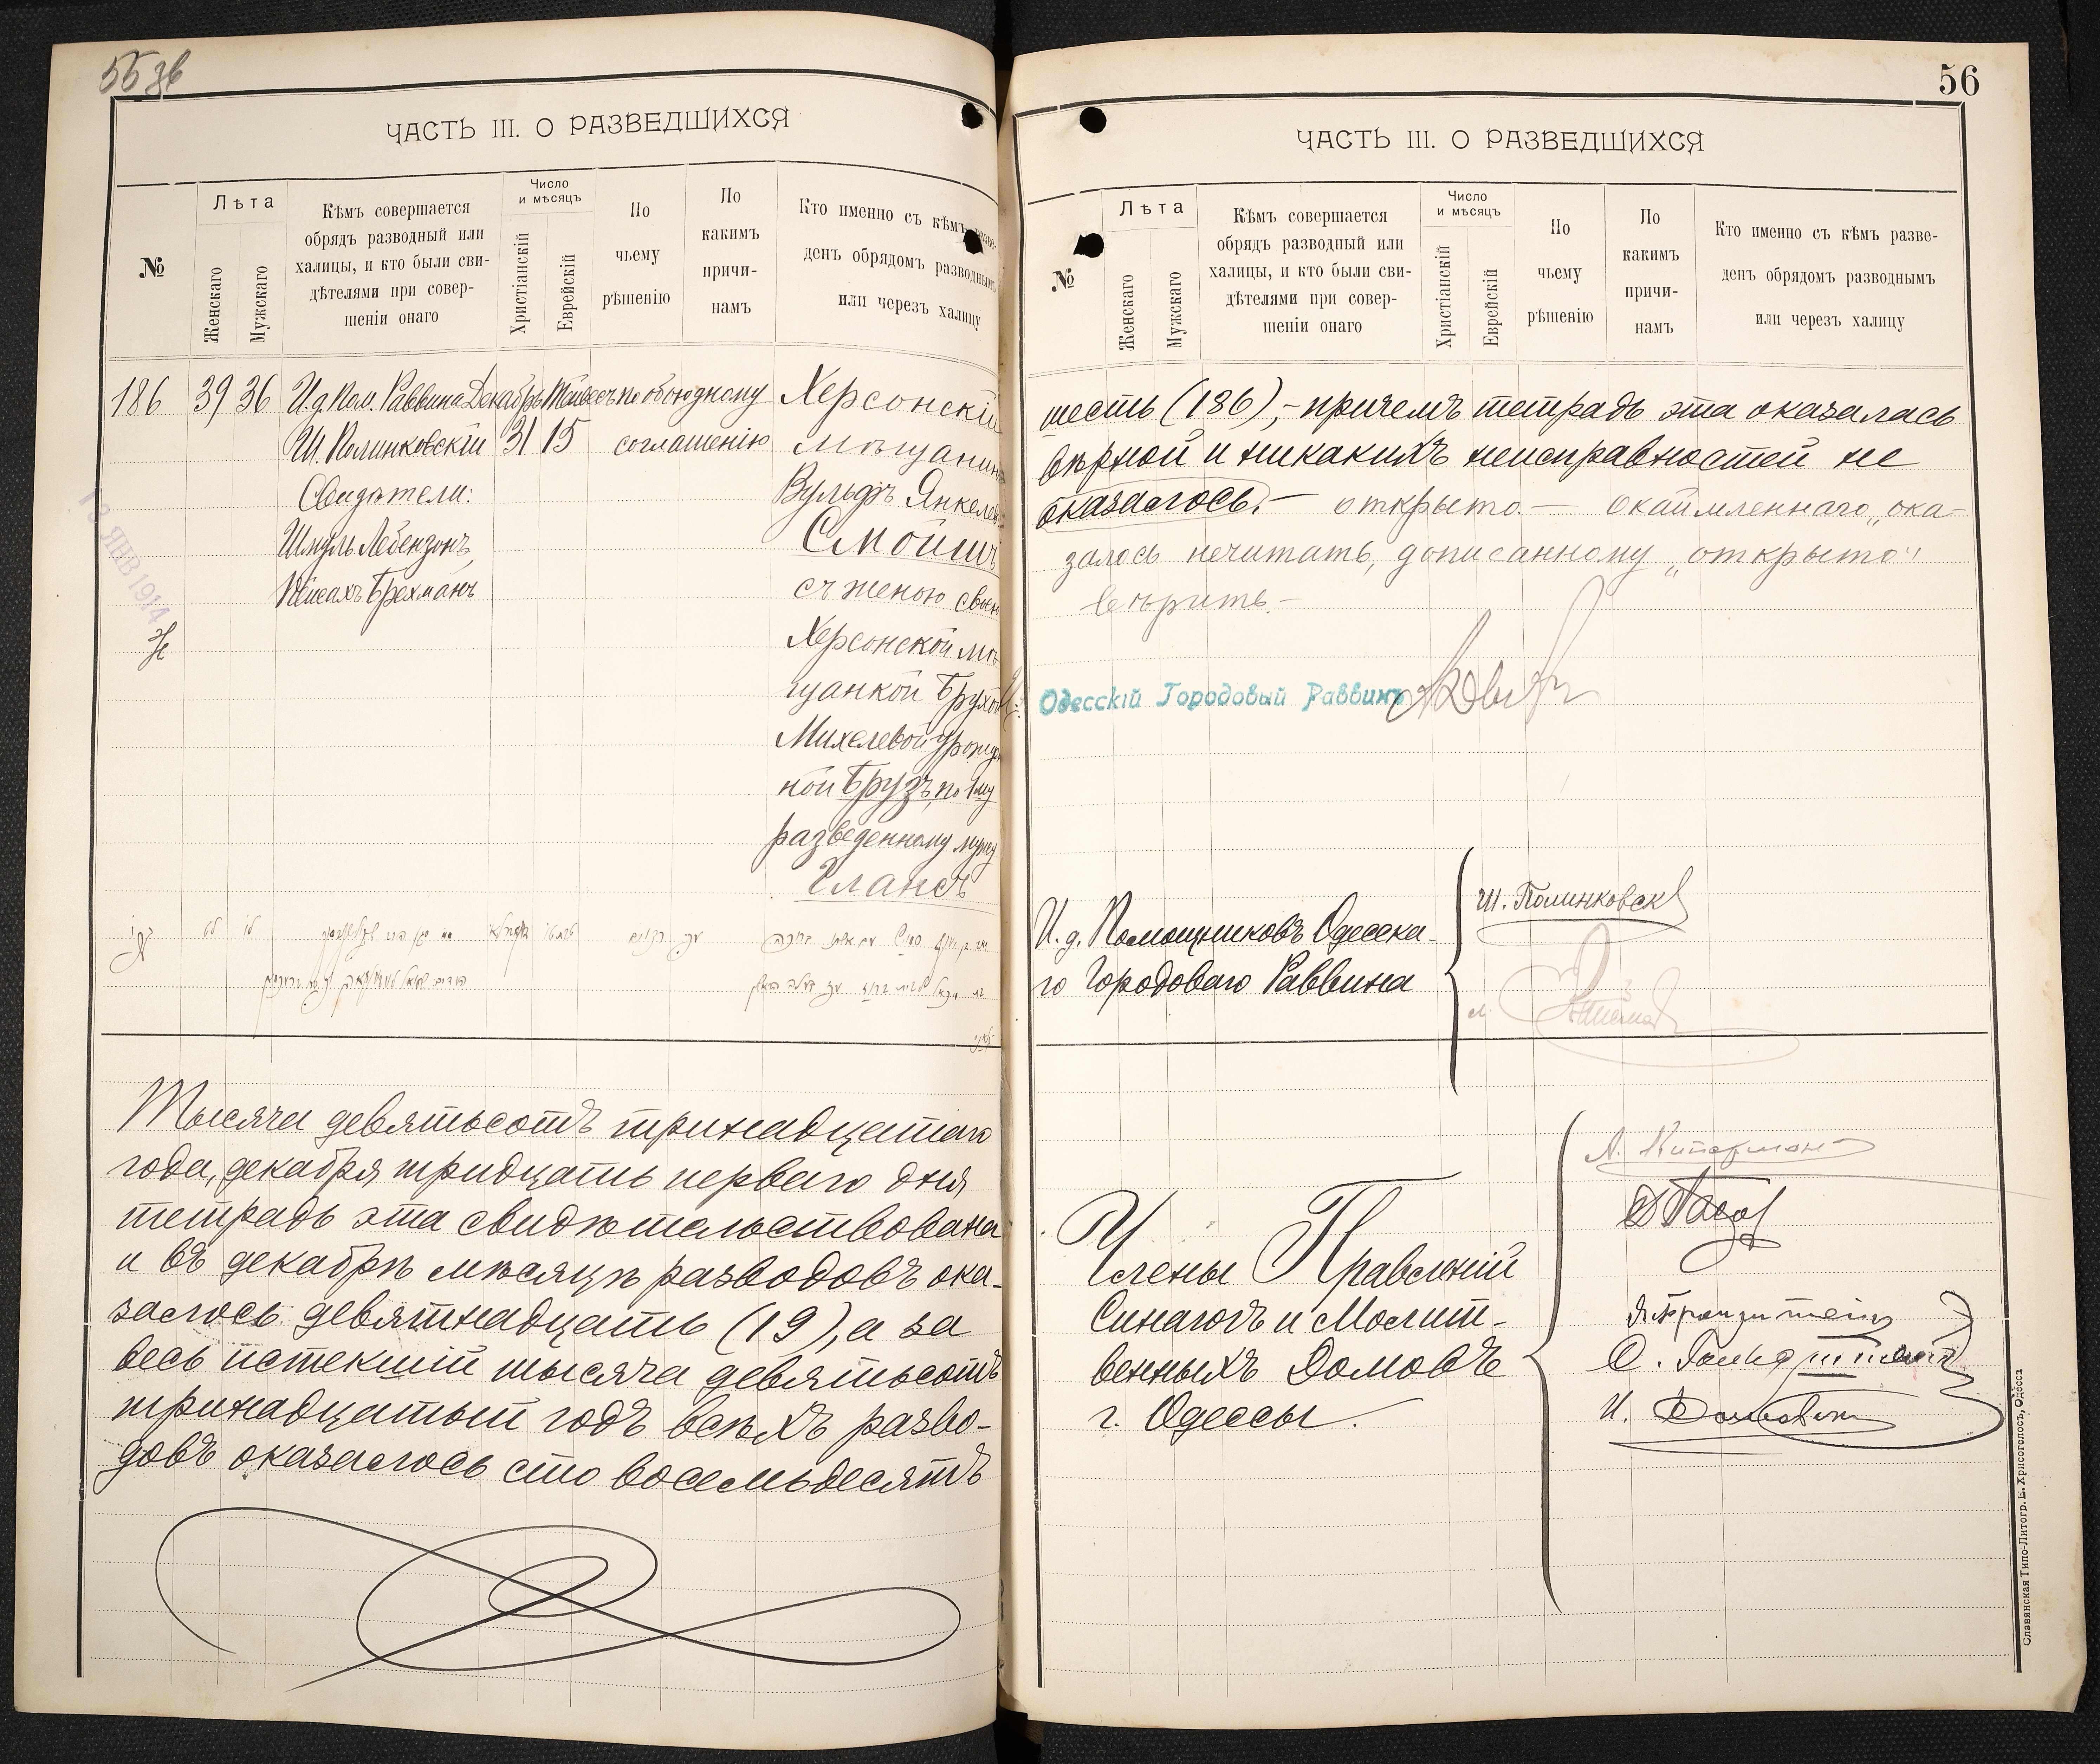 55 зв
ЧАСТЬ III. О РАЗВЕДШИХСЯ
№
Лѣта
Женскаго
Мужскаго
Кѣмъ совершается
обрядъ разводный или
халицы, и кто были сви-
дѣтелями при совер-
шеніи онаго
Число
и мѣсяцъ
Христіанскій
Еврейскій
По
чьему
рѣшенію
По
какимъ
причи-
намъ
Кто именно съ кѣмъ разве-
денъ обрядомъ разводнымъ
или черезъ халицу
186 39 36 И.д. Пом. Раввина Декабрь Тейвесъ по обоюдному Херсонскій
Ш. Полинковскій 31 15 соглашенію мѣщанинъ
Свидѣтели: Вульфъ Янкелев
Шмуль Лебензонъ, Смойшъ
Пейсахъ Брехманъ съ женою своею
13 ЯНВ 1914
Херсонской мѣ
щанкой Брухой
Михелевой урожден
ной Брузъ, по 1му
разведенному мужу
Глансъ
Тысяча девятьсотъ тринадцатаго
года, декабря тридцать перваго дня
тетрадь эта свидѣтельствована
и въ декабрѣ мѣсяцѣ разводовъ ока-
залось девятнадцать (19), а за
весь истекшій тысяча девятьсотъ
тринадцатый годъ всѣхъ разво-
довъ оказалось сто восемьдесятъ
56
ЧАСТЬ III. О РАЗВЕДШИХСЯ
№
Лѣта
Женскаго
Мужскаго
Кѣмъ совершается
обрядъ разводный или
халицы, и кто были сви-
дѣтелями при совер-
шеніи онаго
Число
и мѣсяцъ
Христіанскій
Еврейскій
По
чьему
рѣшенію
По
какимъ
причи-
намъ
Кто именно съ кѣмъ разве-
денъ обрядомъ разводнымъ
или черезъ халицу
шесть (186),- причемъ тетрадь эта оказалась
вѣрной и никакихъ неисправностей не
оказалось.— открыто.— окаймленнаго „ока-
залось нечитать, дописанному „открыто“
вѣрить.—
Одесскій Городовый Раввинъ
И. д. Помощниковъ Одесска-
го Городоваго Раввина
Ш. Полинковскій
Члены Правленій
Синагогъ и Молит-
венныхъ Домовъ
г. Одессы.
Славянская Типо-Литогр. Е. Хрисогелосъ, Одесса